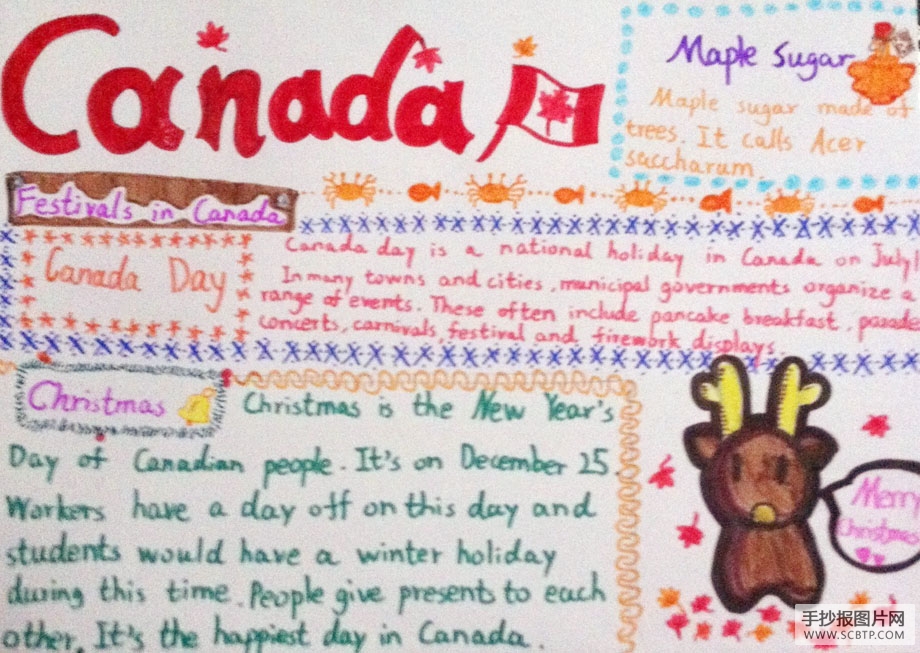 Canada
Maple Sugar
Maple sugar made of
trees. It calls Acer
saccharum.
Festivals in Canada
Canada Day
Canada day is a national holiday in Canada on July 1
In many towns and cities, municipal governments organize a
range of events. These often include pancake breakfast, parade
concerts, carnivals, festival and firework displays.
Christmas
Christmas is the New Year's
Day of Canadian people. It's on December 25.
Workers have a day off on this day and
students would have a winter holiday
during this time. People give present to each
other. It's the happiest day in Canada.
Merry
Christmas
手抄报图片网
WWW.SCBTP.COM